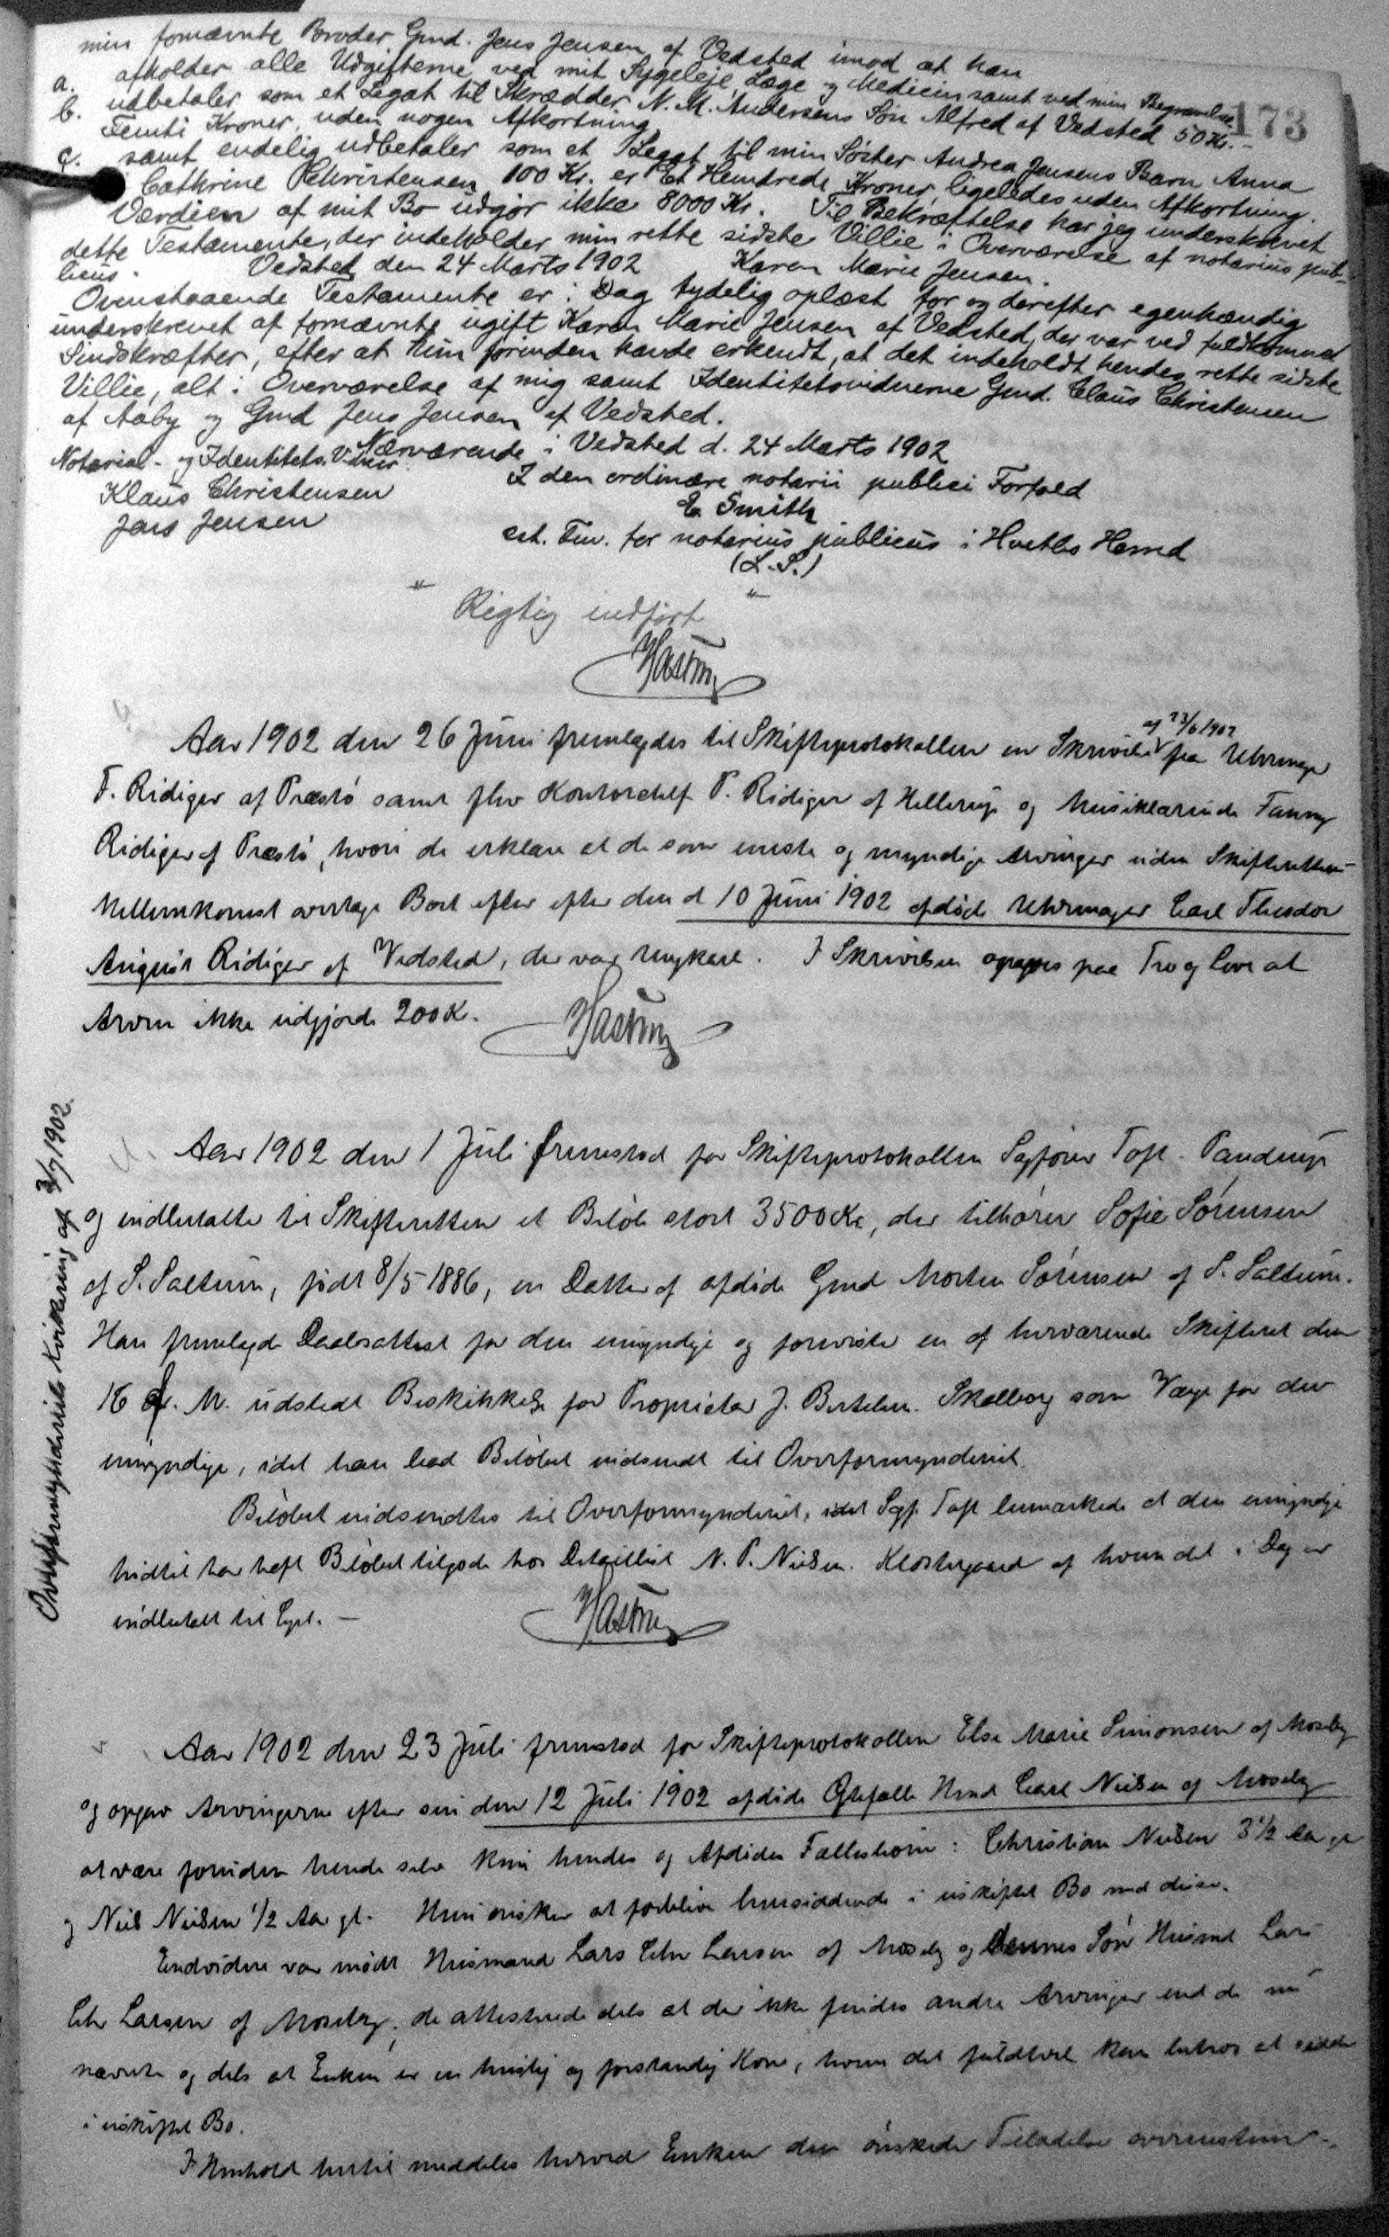 173
min fornævnte Broder Gmd. Jens Jensen af Vedsted imod at han
a. afholder alle Udgifterne ved mit Sygeleje Læge og Medicin samt ved min Begravelse
b. udbetaler som et Legat til Skrædder N. M. Andersens Søn Alfred af Vedsted 50 Kr. -
Femti Kroner uden nogen Afkortning
c. samt endelig udbetaler som et Legat til min Søster Andrea Jensens Barn Anna
Cathrine Christensen 100 Kr. er Et Hundrede Kroner ligeledes uden Afkortning.
Værdien af mit Bo udgjør ikke 8000 Kr. Til Bekræftelse har jeg underskrevet
dette Testamente, der indeholder min rette sidste Villie i Overværelse af notarius pub-
licus. Vedsted den 24 Marts 1902 Karen Marie Jensen.
Ovenstaaende Testamente er i Dag tydelig oplæst for og derefter egenhændig
underskrevet af fornævnte ugift Karen Marie Jensen af Vedsted, der var ved fuldkomne
Sindskræfter, efter at hun forinden havde erkendt, at det indeholdt hendes rette sidste
Villie, alt i Overværelse af mig samt Identitetsvidnerne Gmd. Claus Christensen
af Aaby og Gmd Jens Jensen af Vedsted.
Nærværende i Vedsted d. 24 Marts 1902
Notarial- og Identitets Vidner
I den ordinære notarii publici Forfald
Klaus Christensen
E. Smith
Jens Jensen
cst. Fm. for notarius publicus i Hvetbo Herred
(L. S.)
" Rigtig indført "
Hastrup
Aar 1902 den 26 Juni fremlagdes til Skifteprotokollen en Skrivelse af 23/6 1902 fra Uhrmager
F. Ridiger af Præstø samt fhv Kontorchef P. Ridiger af Hellerup og Musiklærerinde Fanny
Ridiger af Præstø, hvori de erklære at de som eneste og myndige Arvinger uden Skifterettens
Mellemkomst overtage Boet efter efter den d 10 Juni 1902 afdøde Uhrmager Carl Theodor
August Ridiger af Vedsted, der var Ungkarl. I Skrivelsen opgives paa Tro og Love at
Arven ikke udgjorde 200 K.
Hastrup
Aar 1902 den 1 Juli fremstod for Skifteprotokollen Sagfører Toft - Pandrup
og indbetalte til Skifteretten et Beløb stort 3500 Kr, der tilhører Sofie Sørensen
af S. Saltum, født 8/5 1886, en Datter af afdøde Gmd Morten Sørensen af S. Saltum.
Han fremlagde Daabsattest for den umyndige og foreviste en af herværende Skifteret den
16 f. M. udstedt Beskikkelse for Proprietær J. Bertelsen - Skelborg som Værge for den
umyndige, idet han bad Beløbet indsendt til Overformynderiet.
Beløbet indsendtes til Overformynderiet, idet Sagf. Toft bemærkede at den umyndige
hidtil har haft Beløbet tilgode hos Detaillist N. P. Nielsen - Klostergaard af hvem det i Dag er
indbetalt til Sgf. -
Hastrup
Overformynderiets Kvittering af 3/7 1902.
Aar 1902 den 23 Juli fremstod for Skifteprotokollen Else Marie Simonsen af Moseby
og opgav Arvingerne efter sin den 12 Juli 1902 afdøde Ægtefælle Hmd Carl Nielsen af Moseby
at være foruden hende selv kun hendes og Afdødes Fællesbørn: Christian Nielsen 3 1/2 Aar gl
og Niels Nielsen 1/2 Aar gl. Hun ønsker at forblive hensiddende i uskiftet Bo med disse.
Endvidere var mødt Husmand Lars Chr Larsen af Moseby og dennes Søn Husmd Lars
Chr Larsen af Moseby; de attesterede dels at der ikke findes andre Arvinger end de nu
nævnte og dels at Enken er en huslig og forstandig Kone, hvem det fuldtvel kan betros at sidde
i uskiftet Bo.
I Henhold hertil meddeles herved Enken den ønskede Tilladelse overensstem-